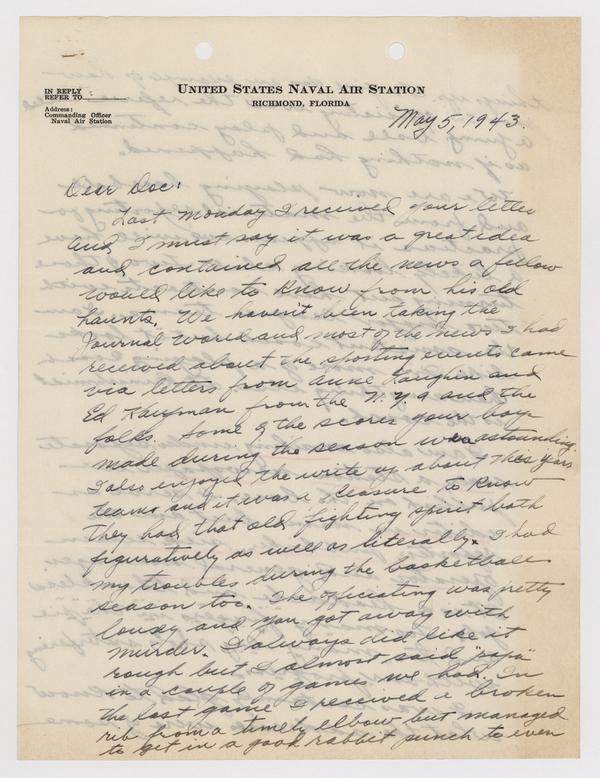 UNITED STATES NAVAL AIR STATION
RICHMOND, FLORIDA
IN REPLY
REFER TO
Address:
Commanding Officer
Naval Air Station
May 5, 1943.
Dear Doc:
Last Monday I received your letter
and I must say it was a great idea
and contained all the news a fellow
would like to know from his old
haunts. We haven't been taking the
Journal World and most of the news I had
received about the sporting events came
via letters from Anne Laughlin and
Ed Kaufman from the N.Y.A and the
folks. Some of the scores your boys
made during the season were astounding.
I also enjoyed the write up about this years
team and it was a pleasure to know
they had that old fighting spirit both
figuratively as well as literally. I had
my troubles during the basketball
season too. The officiating was pretty
lousy and you got away with
murder. I always did like it
rough but I almost said "papa"
in a couple of games we had. In
the last game I received a broken
rib from a timely elbow but managed
to get in a good rabbit punch to even